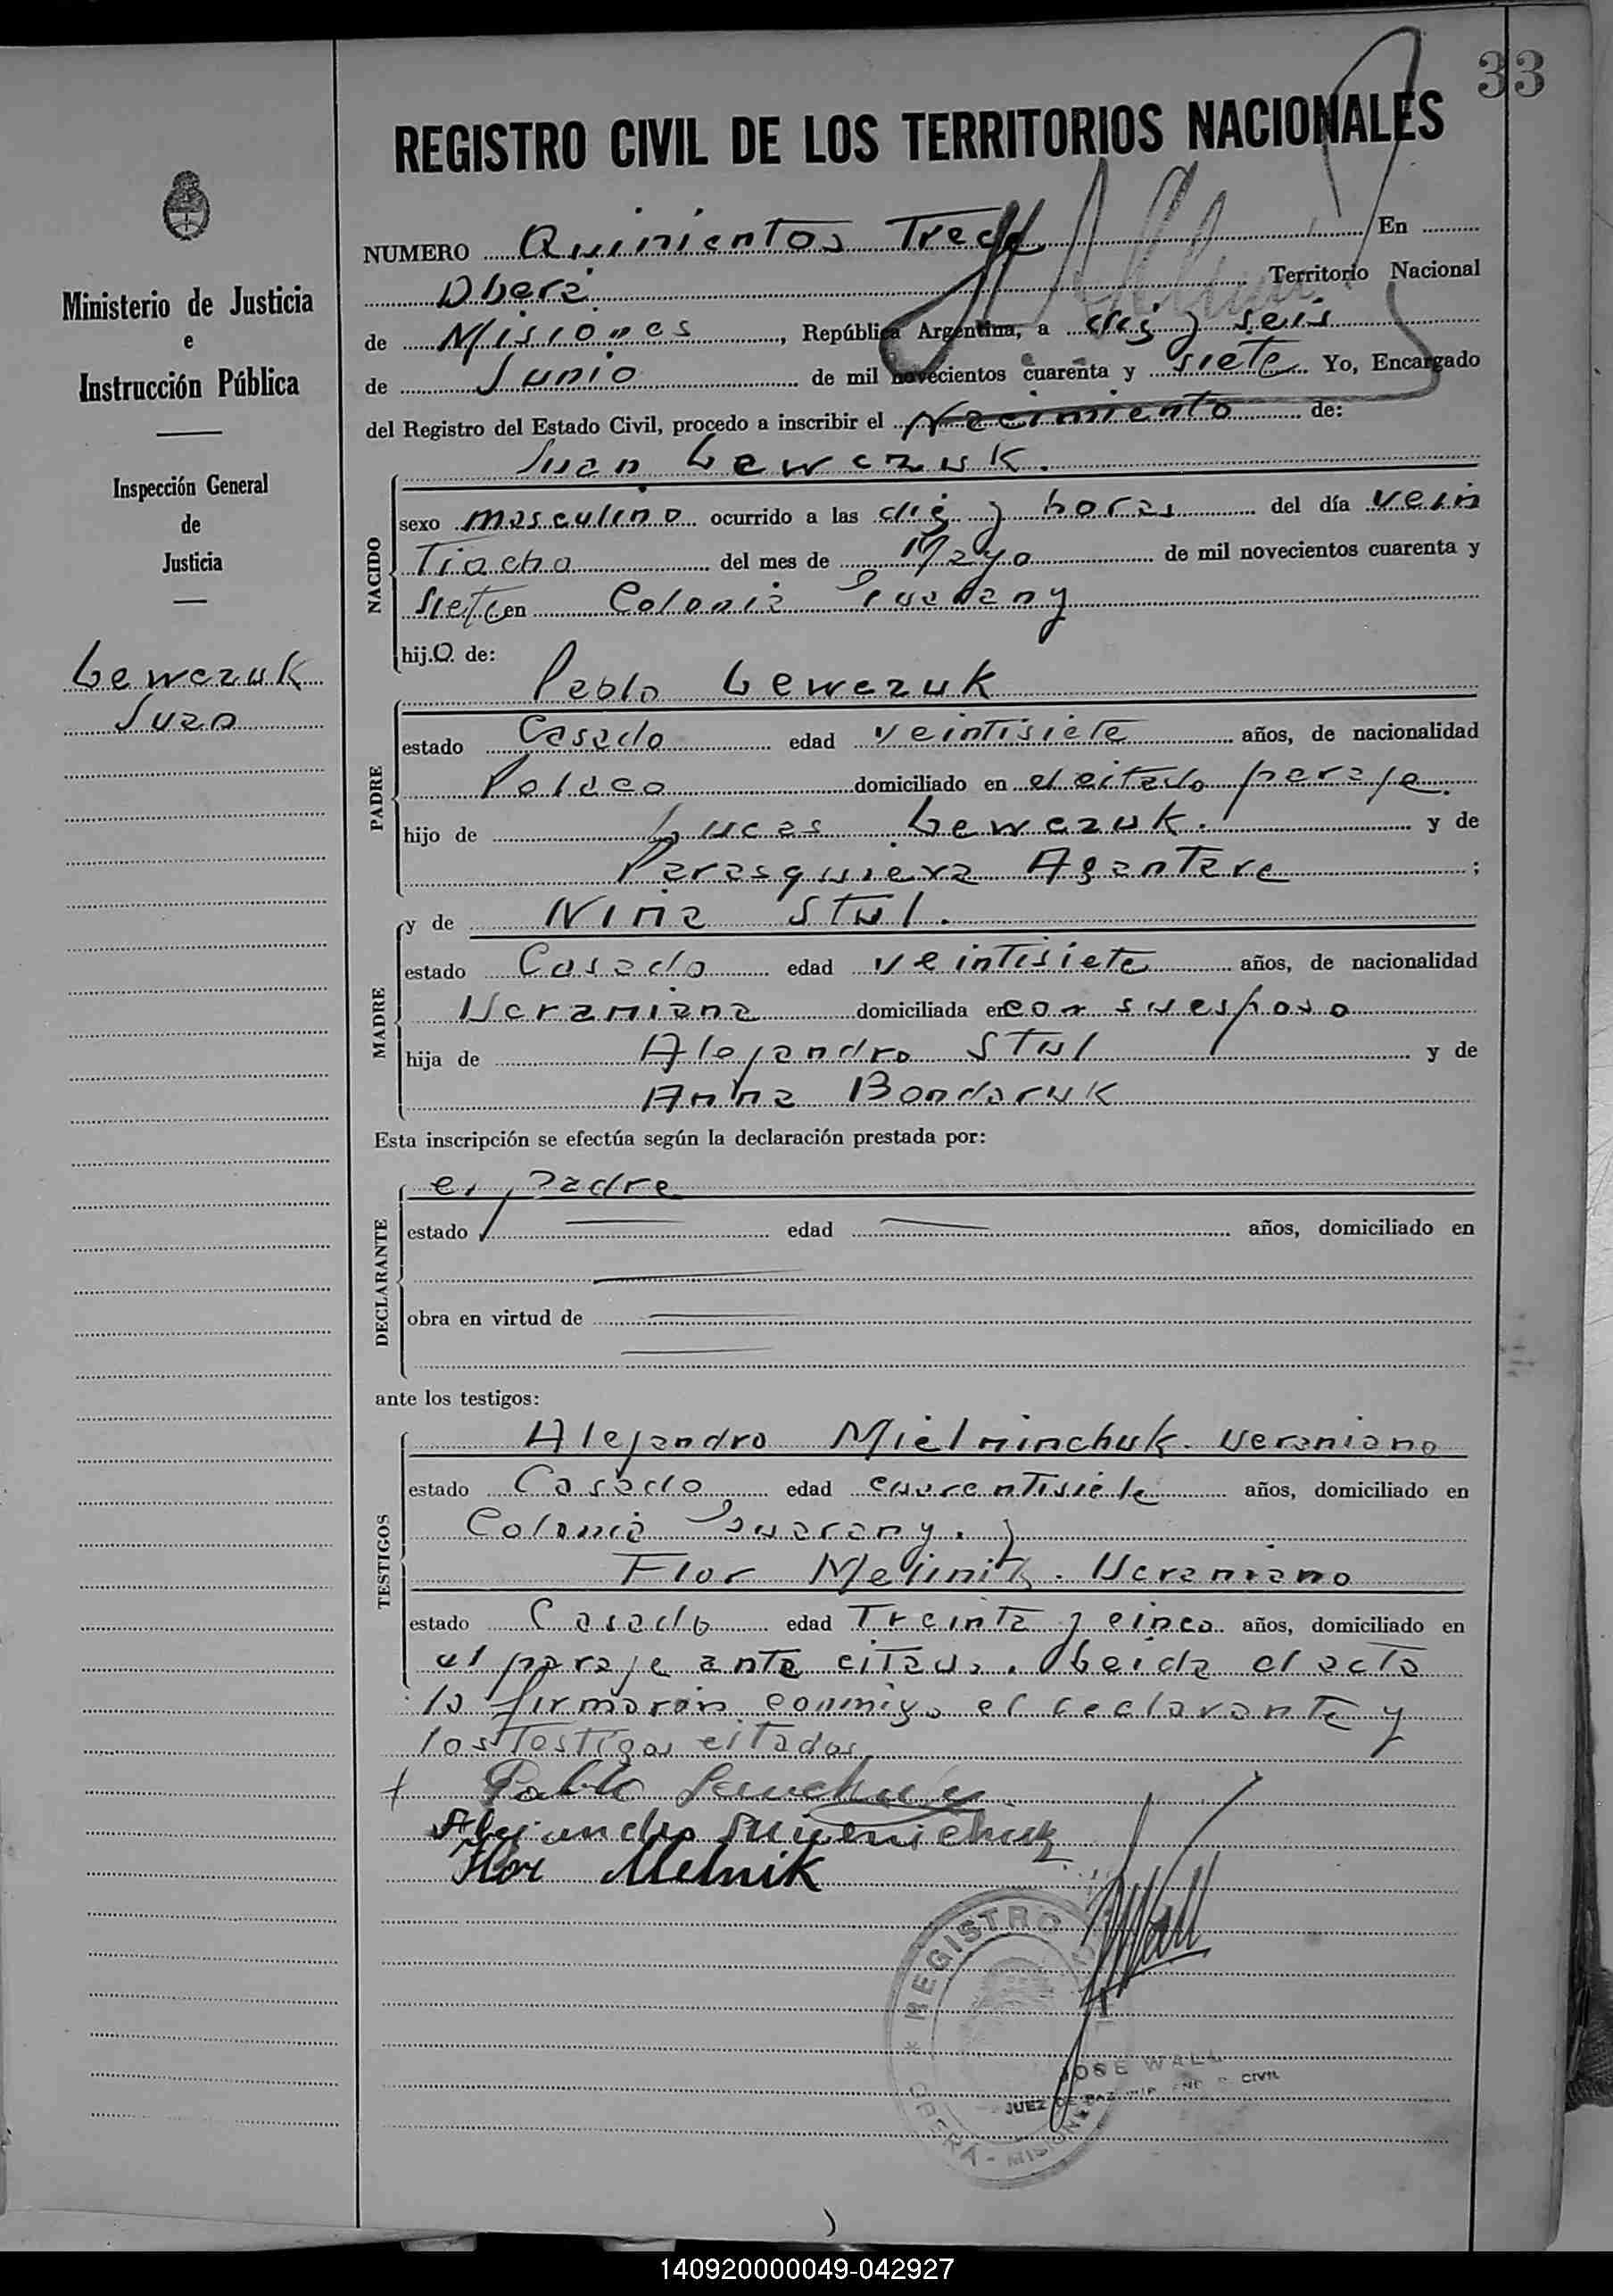 33
REGISTRO CIVIL DE LOS TERRITORIOS NACIONALES
Ministerio de Justicia
e
Instrucción Pública
Inspección General
de
Justicia
Lewczuk
Juan
NUMERO Quinientos Trece En
Oberá Territorio Nacional
de Misiones, República Argentina, a diez y seis
de Junio de mil novecientos cuarenta y siete Yo, Encargado
del Registro del Estado Civil, procedo a inscribir el Nacimiento de:
Juan Lewczuk.
NACIDO
sexo masculino ocurrido a las diez y horas del día vein
Tiocho del mes de Mayo de mil novecientos cuarenta y
siete en Colonia Guarany
hijo de:
Pablo Lewczuk
PADRE
estado Casado edad veintisiete años, de nacionalidad
Polaco domiciliado en el citado paraje.
hijo de Lucas Lewczuk. y de
Parasquieva Agantare ;
y de Nina Stul.
MADRE
estado Casado edad veintisiete años, de nacionalidad
Ucraniana domiciliada en con su esposo
hija de Alejandro Stul y de
Anna Bondaruk
Esta inscripción se efectúa según la declaración prestada por:
el padre
DECLARANTE
estado edad años, domiciliado en
obra en virtud de
ante los testigos:
TESTIGOS
Alejandro Mielninchuk. Ucraniano
estado Casado edad cuarentisiete años, domiciliado en
Colonia Guarany. y
Flor Melinik. Ucraniano
estado Casado edad Treinta y cinco años, domiciliado en
el paraje ante citado. Leida el acta
la firmaron conmigo el declarante y
los Testigos citados
Pablo Lewchuk
Alejandro
Flor Melnik
REGISTRO
OBERÁ - MISIONES
JOSE WALL
JUEZ DE PAZ CIVIL
140920000049-042927